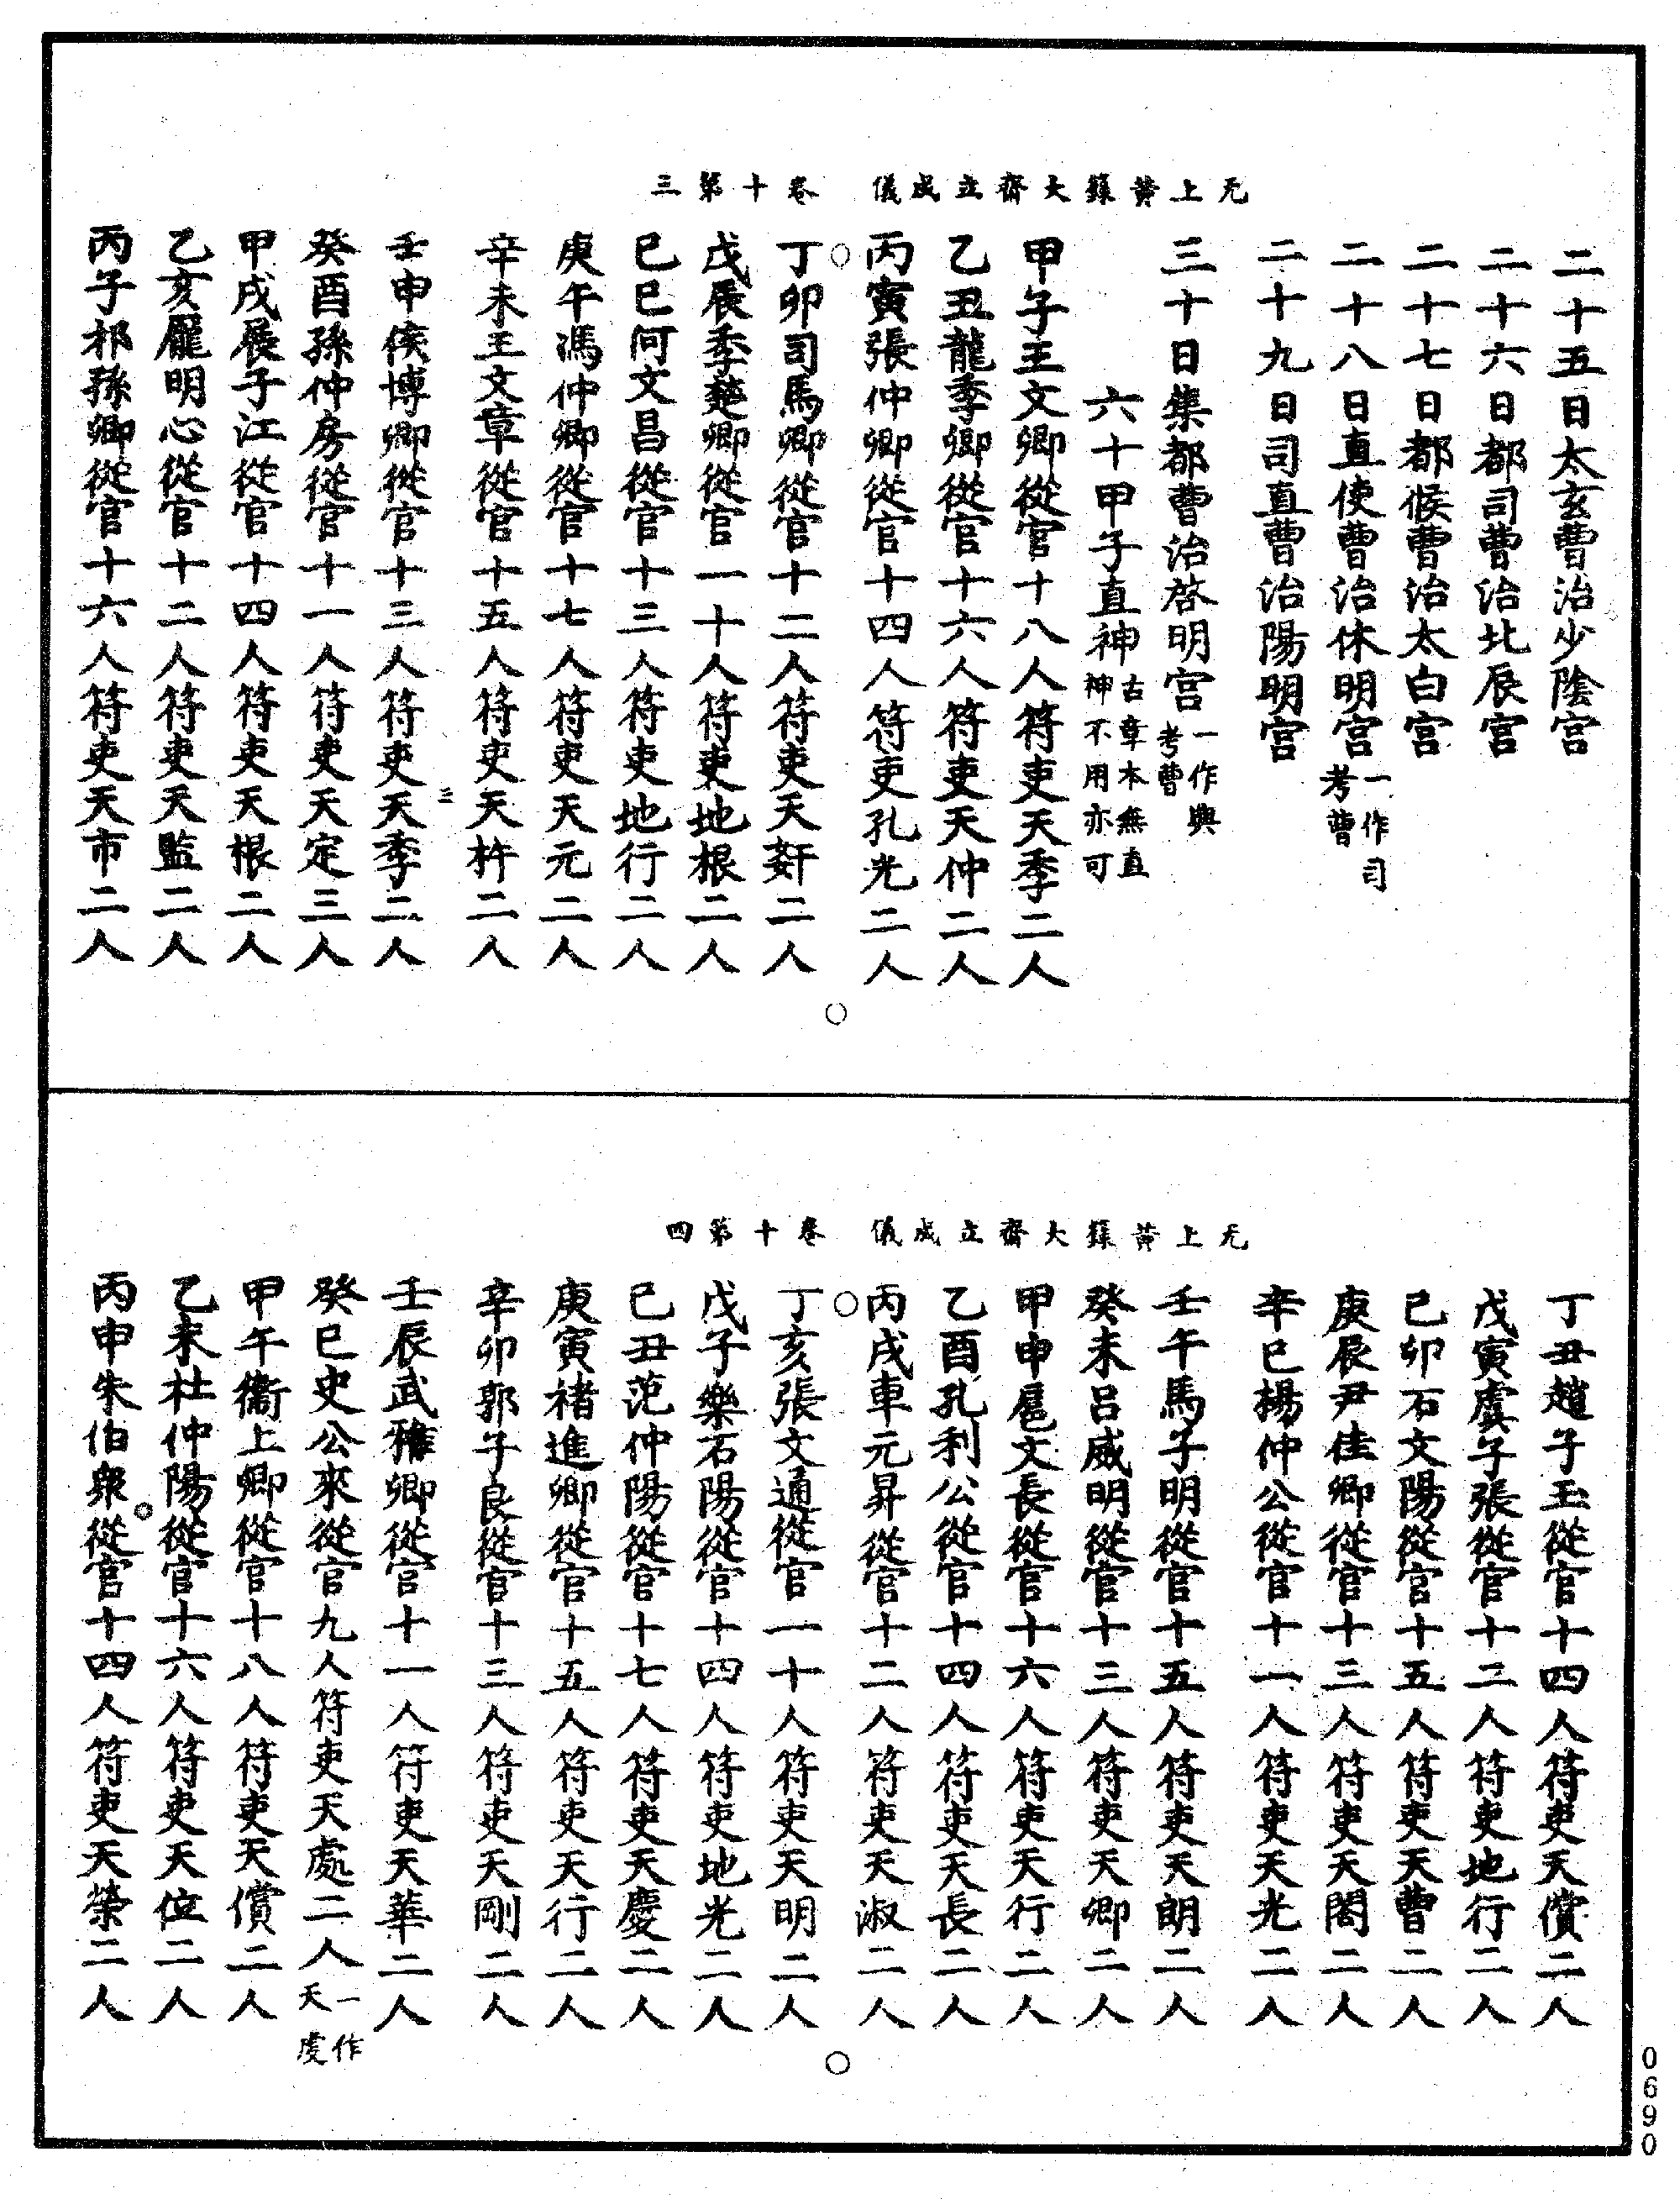 无上黃籙大齋立成儀　卷十第三
二十五日太玄曹治少陰宫
二十六日都司曹治北辰宫
二十七日都候曹治太白宫
二十八日直使曹治休明宫一作司考曹
二十九日司直曹治陽明宫
三十日集都曹治啓明宫一作與考曹
六十甲子直神古章本無直神不用亦可
甲子王文卿從官十八人符吏天季二人
乙丑龍季卿從官十六人符吏天仲二人
丙寅張仲卿從官十四人符吏孔光二人
丁卯司馬卿從官十二人符吏天奸二人
戊辰季楚卿從官一十人符吏地根二人
己巳何文昌從官十三人符吏地行二人
庚午馮仲卿從官十七人符吏天元二人
辛未王文章從官十五人符吏天杵二人
三
壬申侯博卿從官十三人符吏天季二人
癸酉孫仲房從官十一人符吏天定三人
甲戌展子江從官十四人符吏天根二人
乙亥龐明心從官十二人符吏天監二人
丙子邢孫卿從官十六人符吏天市二人
无上黃籙大齋立成儀　卷十第四
丁丑趙子玉從官十四人符吏天償二人
戊寅虞子張從官十二人符吏地行二人
己卯石文陽從官十五人符吏天曹二人
庚辰尹佳卿從官十三人符吏天閣二人
辛巳楊仲公從官十一人符吏天光二人
壬午馬子明從官十五人符吏天朗二人
癸未吕威明從官十三人符吏天卿二人
甲申扈文長從官十六人符吏天行二人
乙酉孔利公從官十四人符吏天長二人
丙戌車元昇從官十二人符吏天淑二人
丁亥張文通從官一十人符吏天明二人
戊子樂石陽從官十四人符吏地光二人
己丑范仲陽從官十七人符吏天慶二人
庚寅褚進卿從官十五人符吏天行二人
辛卯郭子良從官十三人符吏天剛二人
壬辰武雅卿從官十一人符吏天華二人
癸巳史公來從官九人符吏天處二人一作天虔
甲午衞上卿從官十八人符吏天償二人
乙未杜仲陽從官十六人符吏天位二人
丙申朱伯衆從官十四人符吏天榮二人
0690